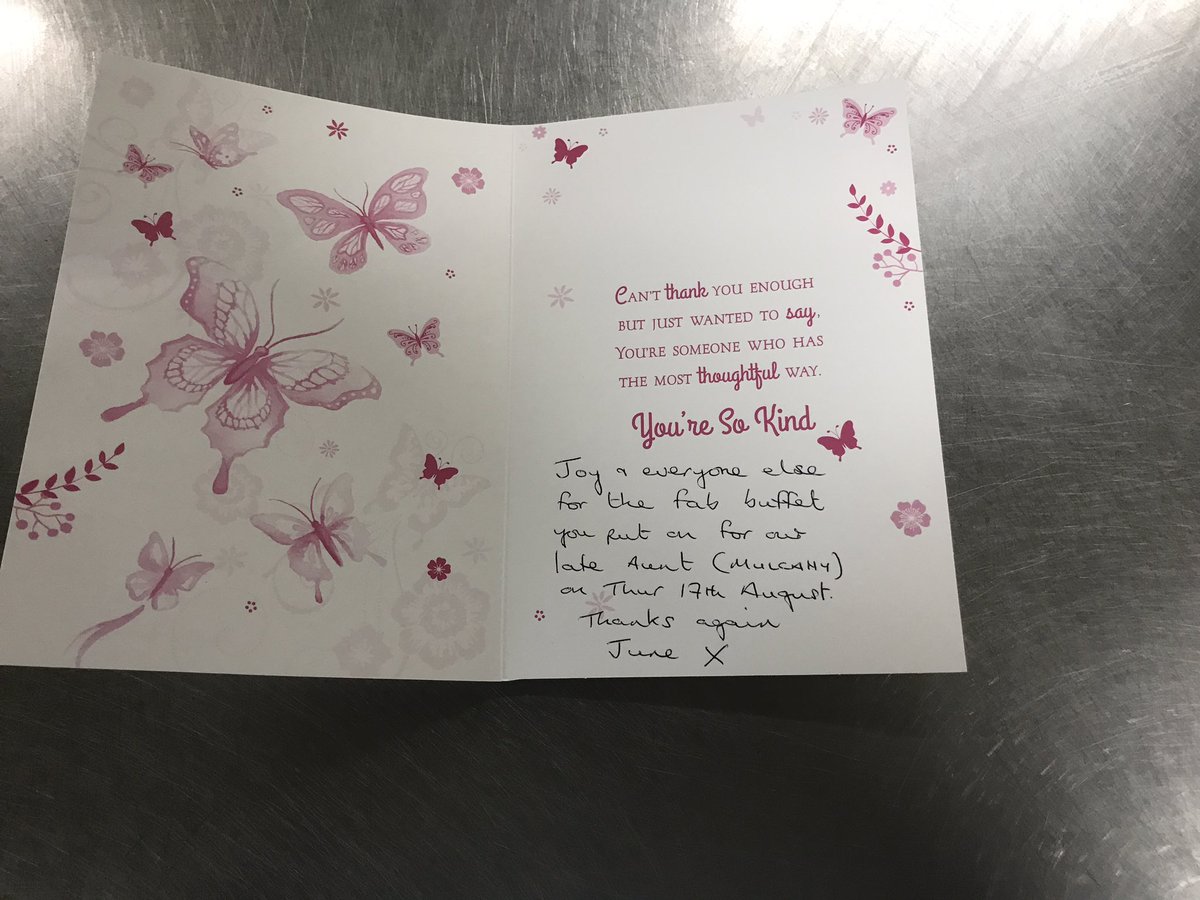 Can't thank you enough
but just wanted to say,
You're someone who has
the most thoughtful way.
You're So Kind
Joy & everyone else
for the fab buffet
you put on for our
late Aunt (MULCAHY)
on Thur 17th August.
Thanks again
June X